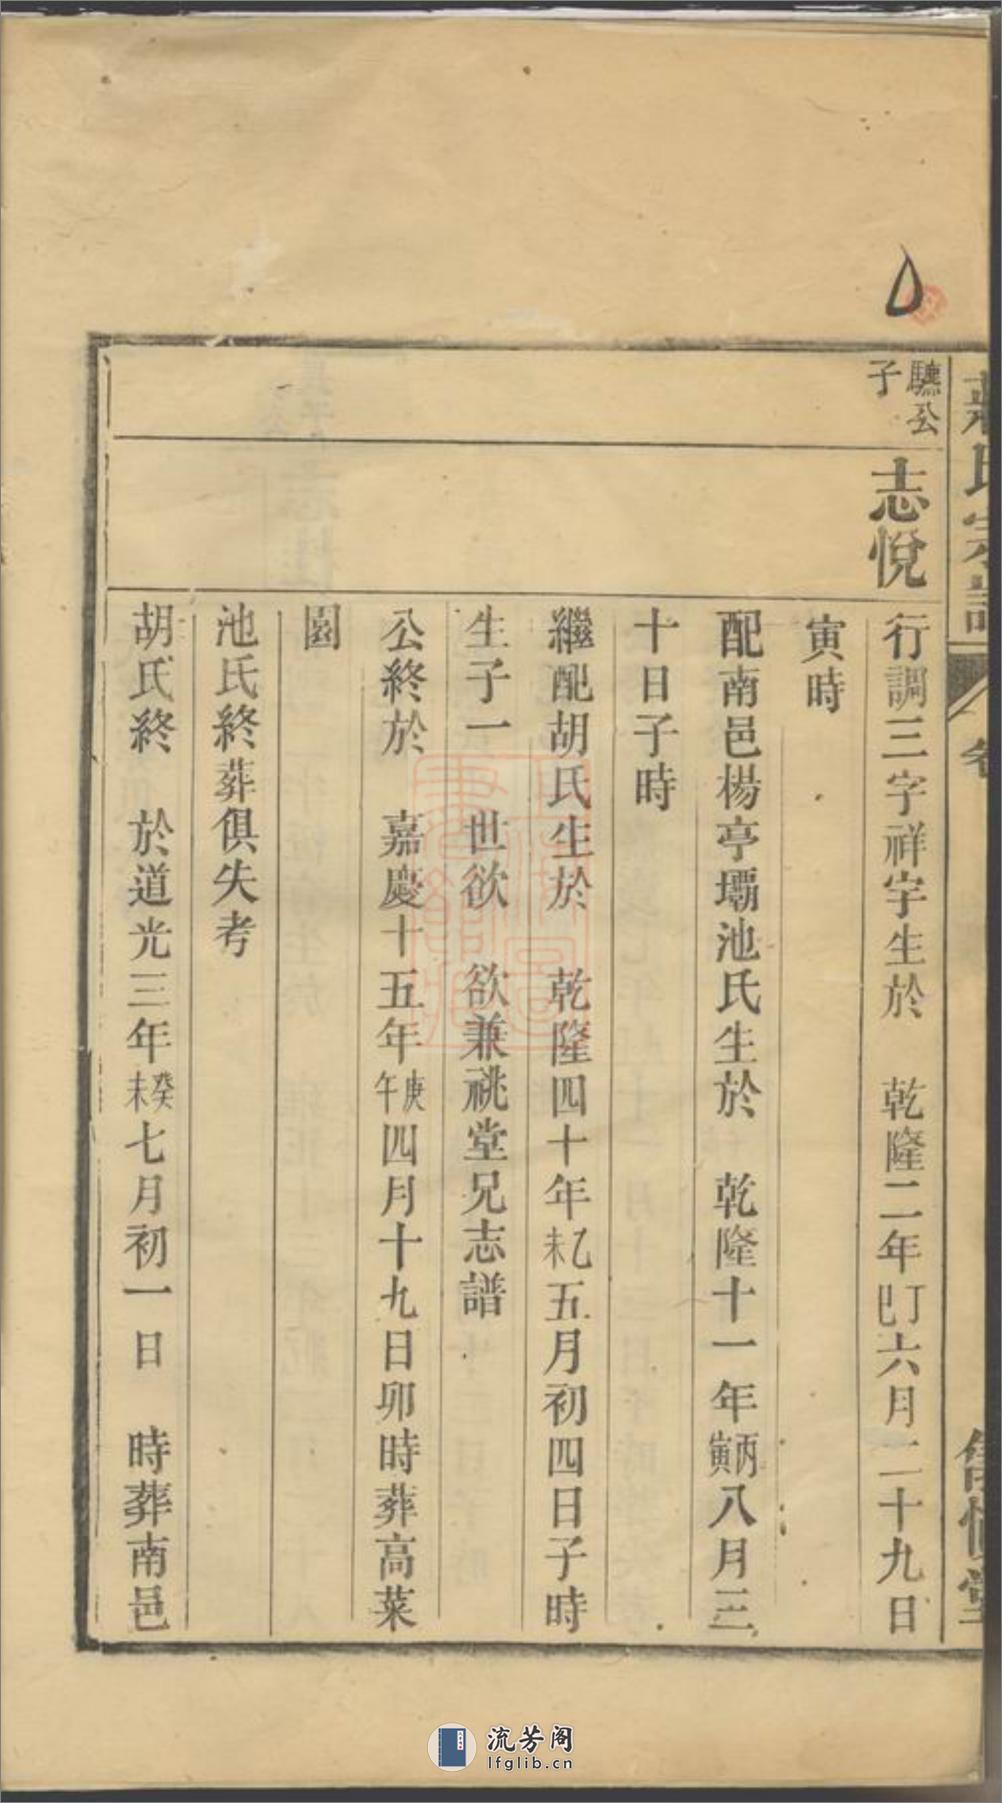 氏宗譜
驄公子
志悅
行調三字祥宇生於　乾隆二年丁巳六月二十九日
寅時
配南邑楊亭壩池氏生於　乾隆十一年丙寅八月三
十日子時
繼配胡氏生於　乾隆四十年乙未五月初四日子時
生子一　世欲　欲兼祧堂兄志譜
公終於　嘉慶十五年庚午四月十九日卯時葬高菜
園
池氏終葬俱失考
胡氏終　於道光三年癸未七月初一日　時葬南邑
流芳阁
lfglib.cn